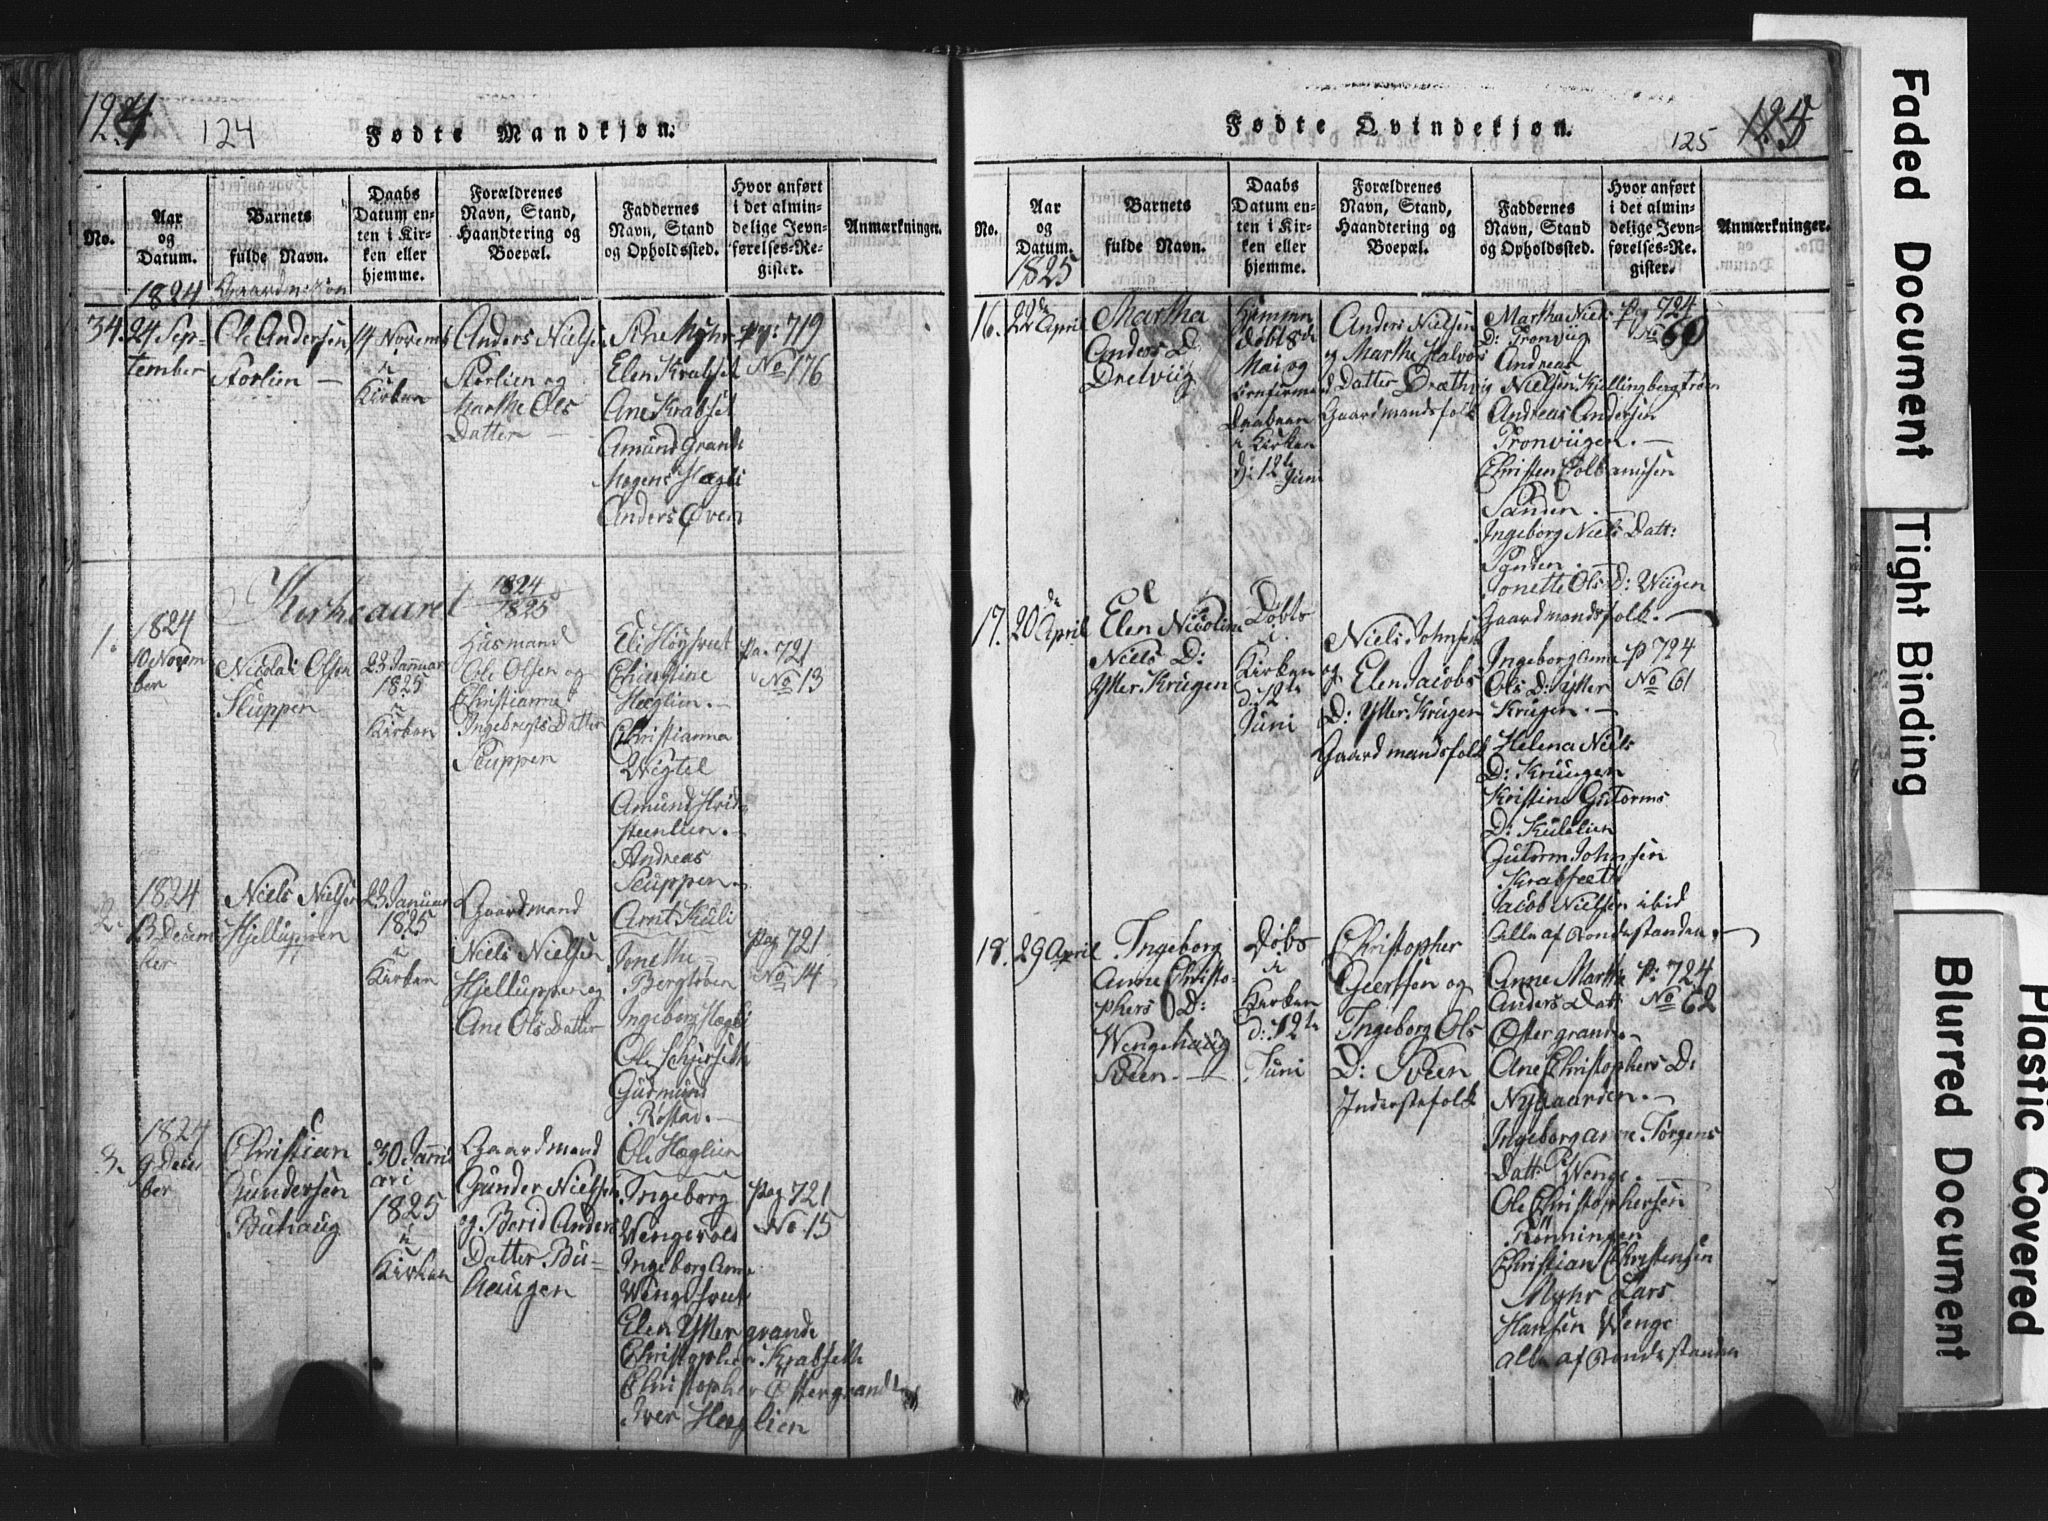 124
124
Fødte Mandkjøn.
No.
Aar
og
Datum.
Barnets
fulde Navn.
Daabs
Datum en-
ten i Kir-
ken eller
hjemme.
Forældrenes
Navn, Stand,
Haandtering og
Boepæl.
Faddernes
Navn, Stand
og Opholdssted.
Hvor anført
i det almin-
delige Jevn-
førelses-Re-
gister.
Anmærkninger.
1824
34.
24 Sep-
tember
Ole Andersen
Storlien
14 Novemb
i
Kirken
Anders Nielsen
Storlien og
Marthe Ols
Datter
Sine Myhr
Elen Krabset
Ane Krabset
Amund Grande
Mogens Hægli
Anders Oven
pag: 719
No 176
Kirkeaaret 1824
1825
1.
1824
10 Novem
ber
Nicolai Olsen
Sluppen
23 Januar
1825
i
Kirken
Husmand
Ole Olsen og
Christianne
Ingebregts Datter
Sluppen
Eli
Christine
Hæglien.
Christianna
Wigtel
Amund Hvid-
steenlien.
Andreas
Sluppen
Arnt
Pa. 721
No 13
2.
1824
13 Decem
ber
Niels Nielsen
Hjelluppen
23 Januar
1825
i
Kirken
Gaardmand
Niels Nielsen
Hjelluppen og
Ane Ols Datter
Jonethe
Bergtøen
Ingeborg Hægli
Ole
Gudmund
Rostad.
Ole Hæglien
Pag 721
No 14
3.
1824
9 Decem
ber
Christian
Gundersen
Buhaug
30 Janu
ari
1825
i
Kirken
Gaardmand
Gunder Nielsen
og Berid Anders
Datter Bu-
haugen
Ingeborg
Wengevold
Ingeborg Anna
Elen Ytter grande
Christopher Krabseth
Christopher Østergrande
Iver Hæglien
Pag 721
No 15
Fødte Qvindekjøn.
125
125
No.
Aar
og
Datum.
1825
Barnets
fulde Navn.
Daabs
Datum en-
ten i Kir-
ken eller
hjemme.
Forældrenes
Navn, Stand,
Haandtering og
Boepæl.
Faddernes
Navn, Stand
og Opholdssted.
Hvor anført
i det almin-
delige Jevn-
førelses-Re-
gister.
Anmærkninger.
16.
22de April
Martha
Anders D.
Drelviig
Hjemme
døbt 8de
Mai og
Confirmered
Daaben
i Kirken
D: 12te
Juni
Anders Nielsen
og Marthe Halvors
Datter
Gaardmandsfolk
Martha Niels
D: Tronviig
Andreas
Nielsen Kullingbergtrøen
Andreas Andersen
Tronviigen.
Christen Colbanusen
Sanden.
Ingeborg Niels Datt:
Sanden.
Jonette Ols D: Wiigen
Gaardmandsfolk.
Pag 724
No 60
17.
20de April
Elen Nicoline
Niels D:
Ytter Krugen
Døbts
i
Kirken
D: 12te
Juni
Niels Johnsen
og
Elen Jacobs
D: Ytter Krugen
Gaardmandsfolk
Ingeborg Anna
Ols D: Ytter
Krugen.
Helena Niels
D: Kruugen
Kristine Gutorms
D:
Gutorm Johnsen
Krabseth
Jacob Nielsen ibid
Alle af Bondestanden.
P 724
No 61
18.
29 April
Ingeborg
Anne Christo-
phers D:
Wengehaug
Sveen
Døbs
i
Kirken
D: 12te
Juni
Christopher
Geertsen og
Ingeborg Ols
D: Sveen
Inderstefolk
Anne Martha
Anders Datt
Østergrande
Ane Christophers D:
Nygaarden.
Ingeborg Anne Jørgens
Datt: Wenge.
Ole Christophersen
Rønningen
Christian Christensen
Myhr Lars
Hansen Wenge
alle af Bondestanden
P: 724
No 62
Faded Document
Tight Binding
Blurred Document
Plastic Covered